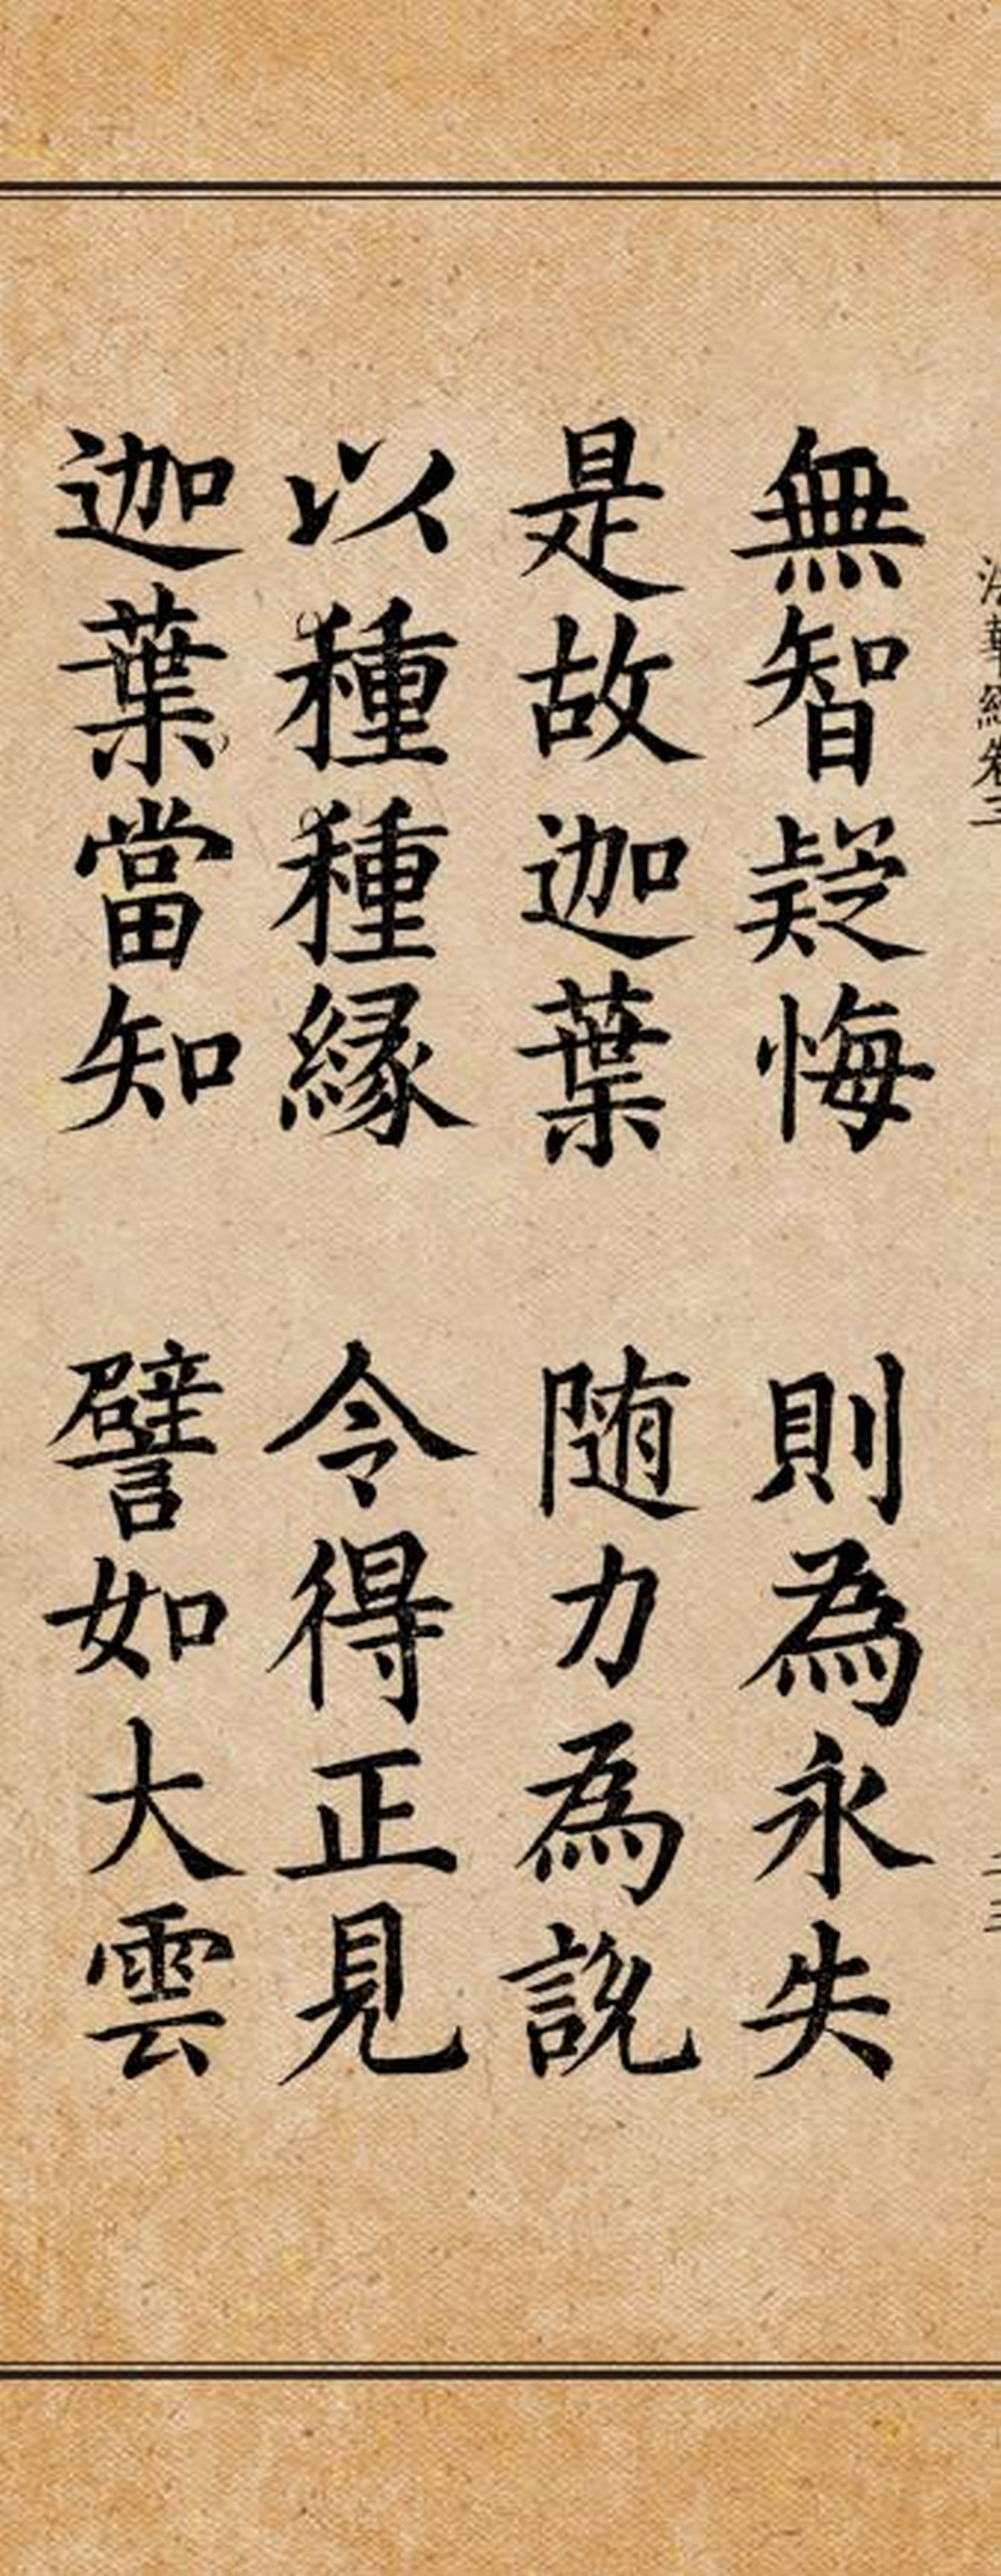 法華經卷三 二三
無智疑悔 則為永失
是故迦葉 随力為說
以種種緣 令得正見
迦葉當知 譬如大雲